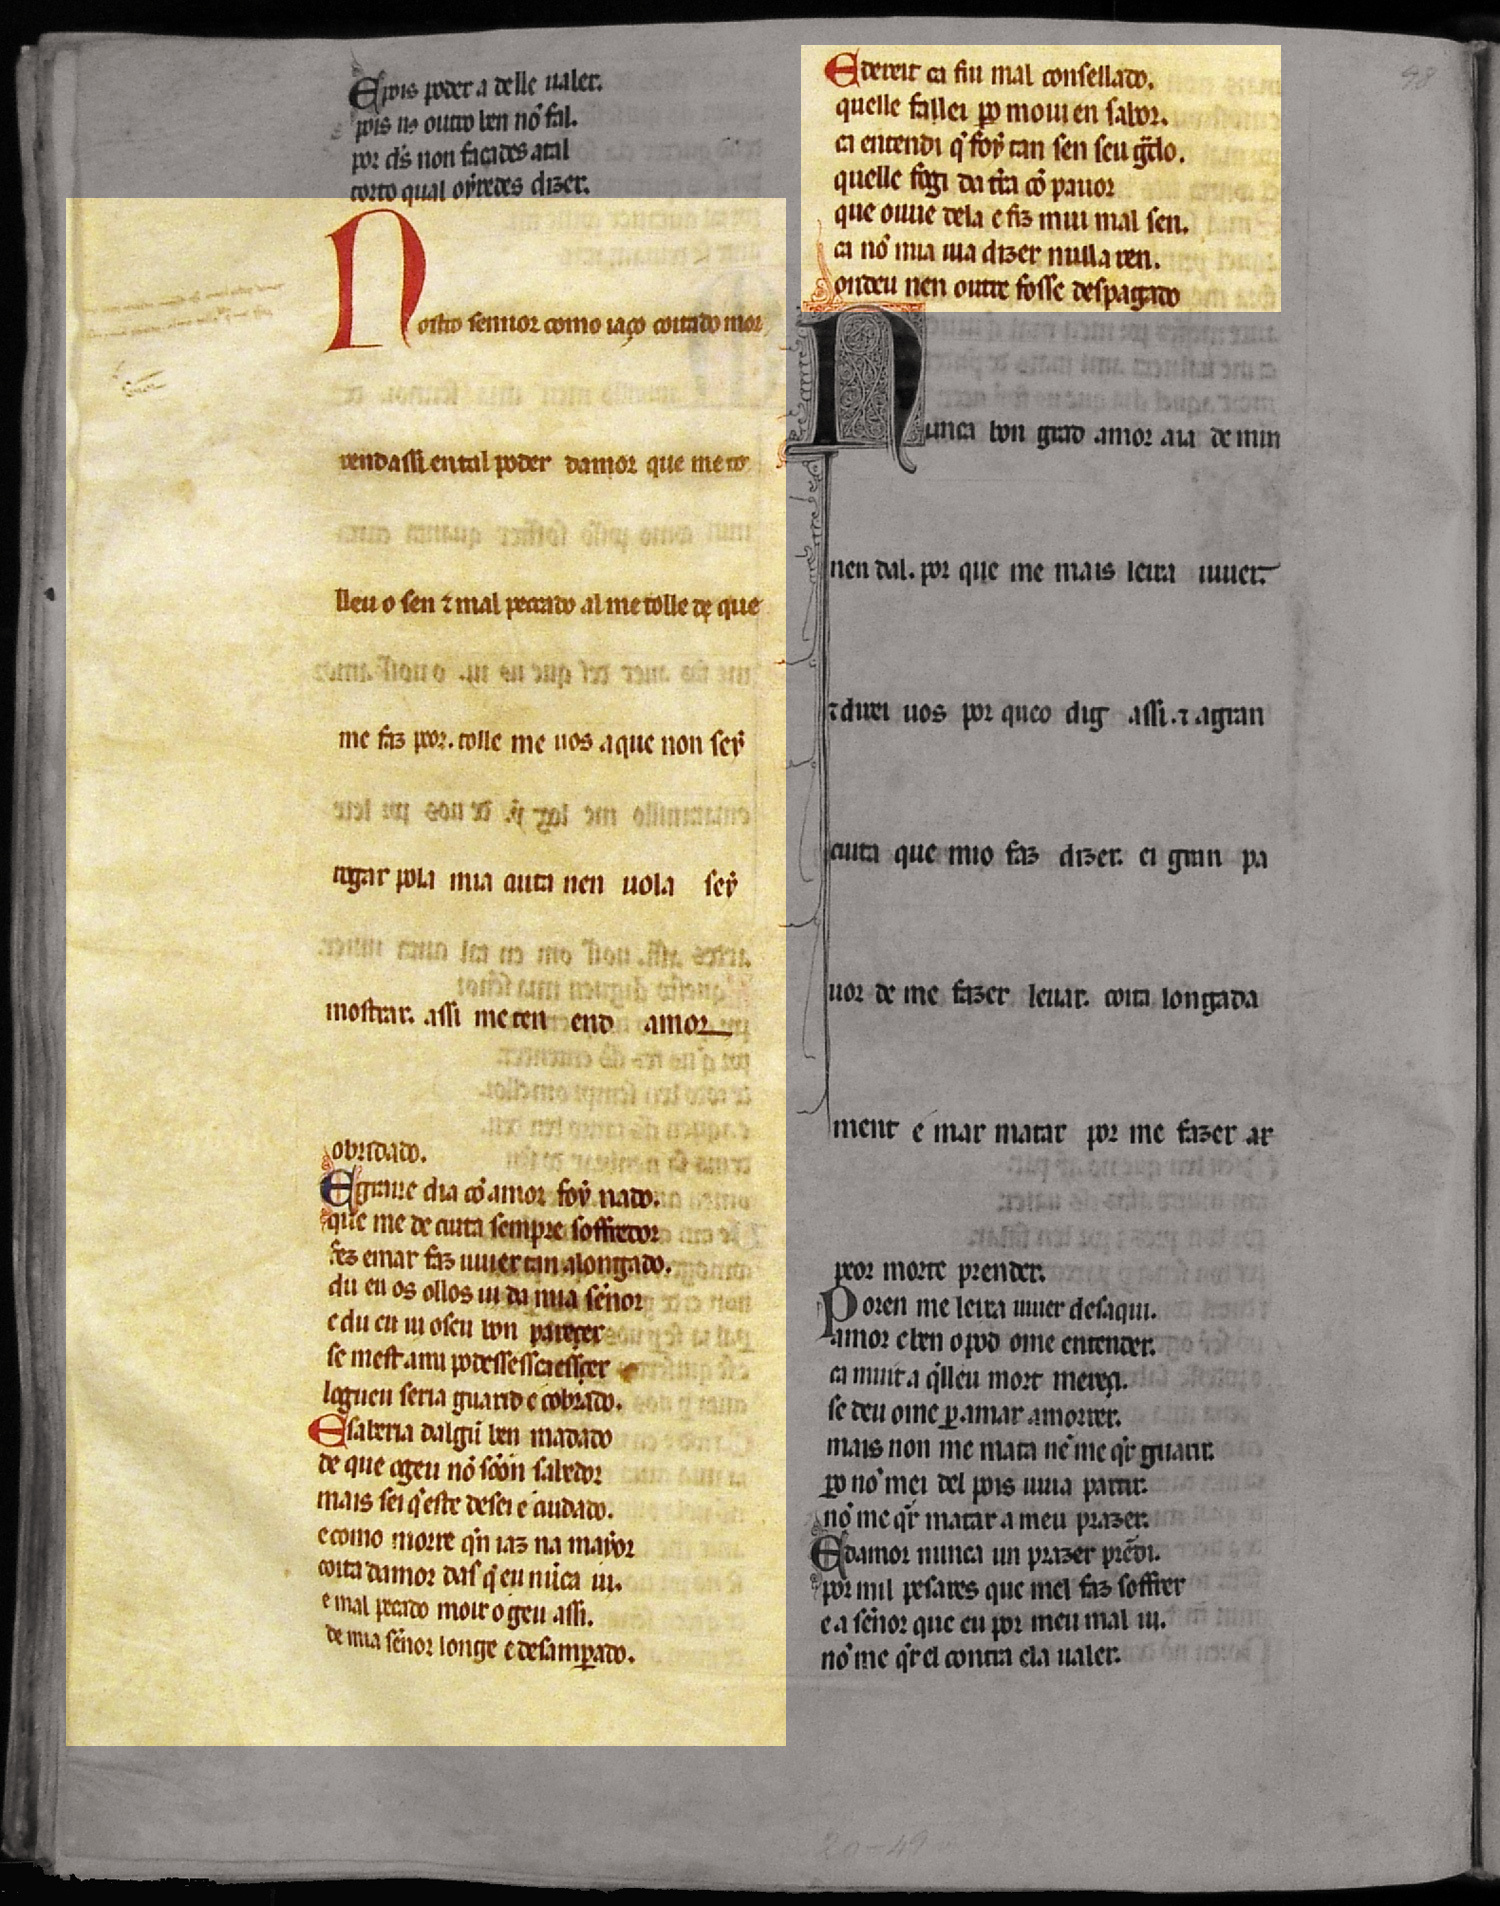 Epois poder a de lle ualer.
pois ne outro ben nõ fal.
por ds̃ non façades atal
torto qual oyredes dizer.
Nostro sennor como iaço coitado mor
rendassi en tal poder damor que me to
lleu o sen ⁊ mal peccado al me tolle de que
me faz peor. tolle me uos a que non seẏ
rogar pola mia cuita nen uola seẏ
mostrar. assi me ten end amor
obridado.
E graue dia cõ amor foẏ nado.
que me de cuita sempre soffredor
fez e mar faz uiuer tan alongado.
du eu os ollos ui da mia sẽnor
e du eu ui o seu bon pareçer
se mest
logueu seria guarid e cobrado.
E saberia dalgũ ben mãdado
de que ogeu nõ sõõn sabedor
mais sei q̃ este deseie cuidado.
e como morre q̃n iaz na mayor
coita damor das q̃ eu nũca ui.
e mal pecado moir ogeu assi.
de mia sẽnor longe e desamparado.
E dereit ei ca fiu mal consellado.
quelle fallei pero mouu en sabor.
ca entendi q̃ foẏ tan sen seu grãdo.
quelle fogi da terra cõ pauor
que ouue dela e fiz mui mal sen.
ca nõ mia uia dizer nulla ren.
ondeu nen outre fosse despagado
Nunca bon grad amor aia de min
nen dal. por que me mais leixa uiuer.
⁊ direi uos por queo dig assi. ⁊ a gran
cuita que mio faz dizer. ei gran pa
uor de me fazer leuar. coita longada
ment e mar matar por me fazer ar
peor morte prender.
Poren me leixa uiuer des aqui.
amor e ben o pod ome entender.
ca muit a q̃lleu mort mereçi.
se deu ome per amar a morrer.
mais non me mata nẽ me q̃r guarir.
pero nõ mei del pois uiua partir.
nõ me q̃r matar a meu prazer.
E damor nunca un prazer prẽdi.
por mil pesares que mel faz soffrer
e a sẽnor que eu por meu mal ui.
nõ me q̃r el contra ela ualer.
98
20-49